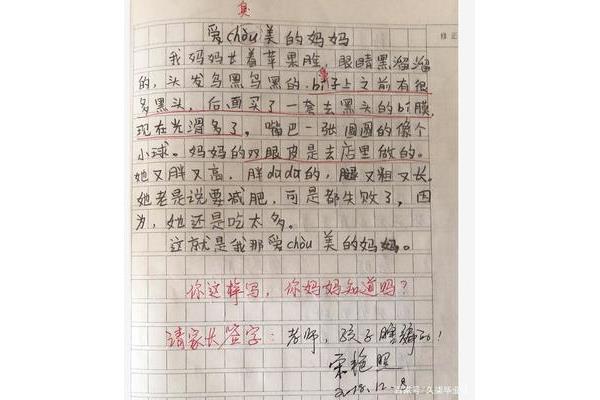 臭
爱chòu美的妈妈
修正
我妈妈长着苹果脸,眼睛黑溜溜
的,头发乌黑乌黑的.bí子上之前有很
鼻
多黑头,后面买了一套去黑头的bí膜,
现在光滑多了。嘴巴一张圆圆的像个
小球。妈妈的双眼皮是去店里做的。
她又胖又高,胖dūdū的,腿又粗又长。
她老是说要减肥,可是都失败了,因
为,她还是吃太多。
这就是我那爱chòu美的妈妈。
你这样写,你妈妈知道吗?
请家长签字:老师,孩子瞎编的!
2018.12.8